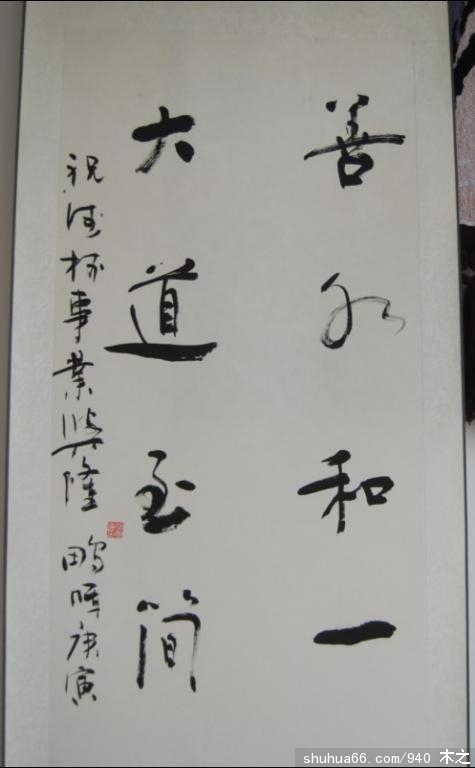 善水和一
大道至简
祝 事業興隆 鹏晖庚寅
shuhua66.com/940 木之